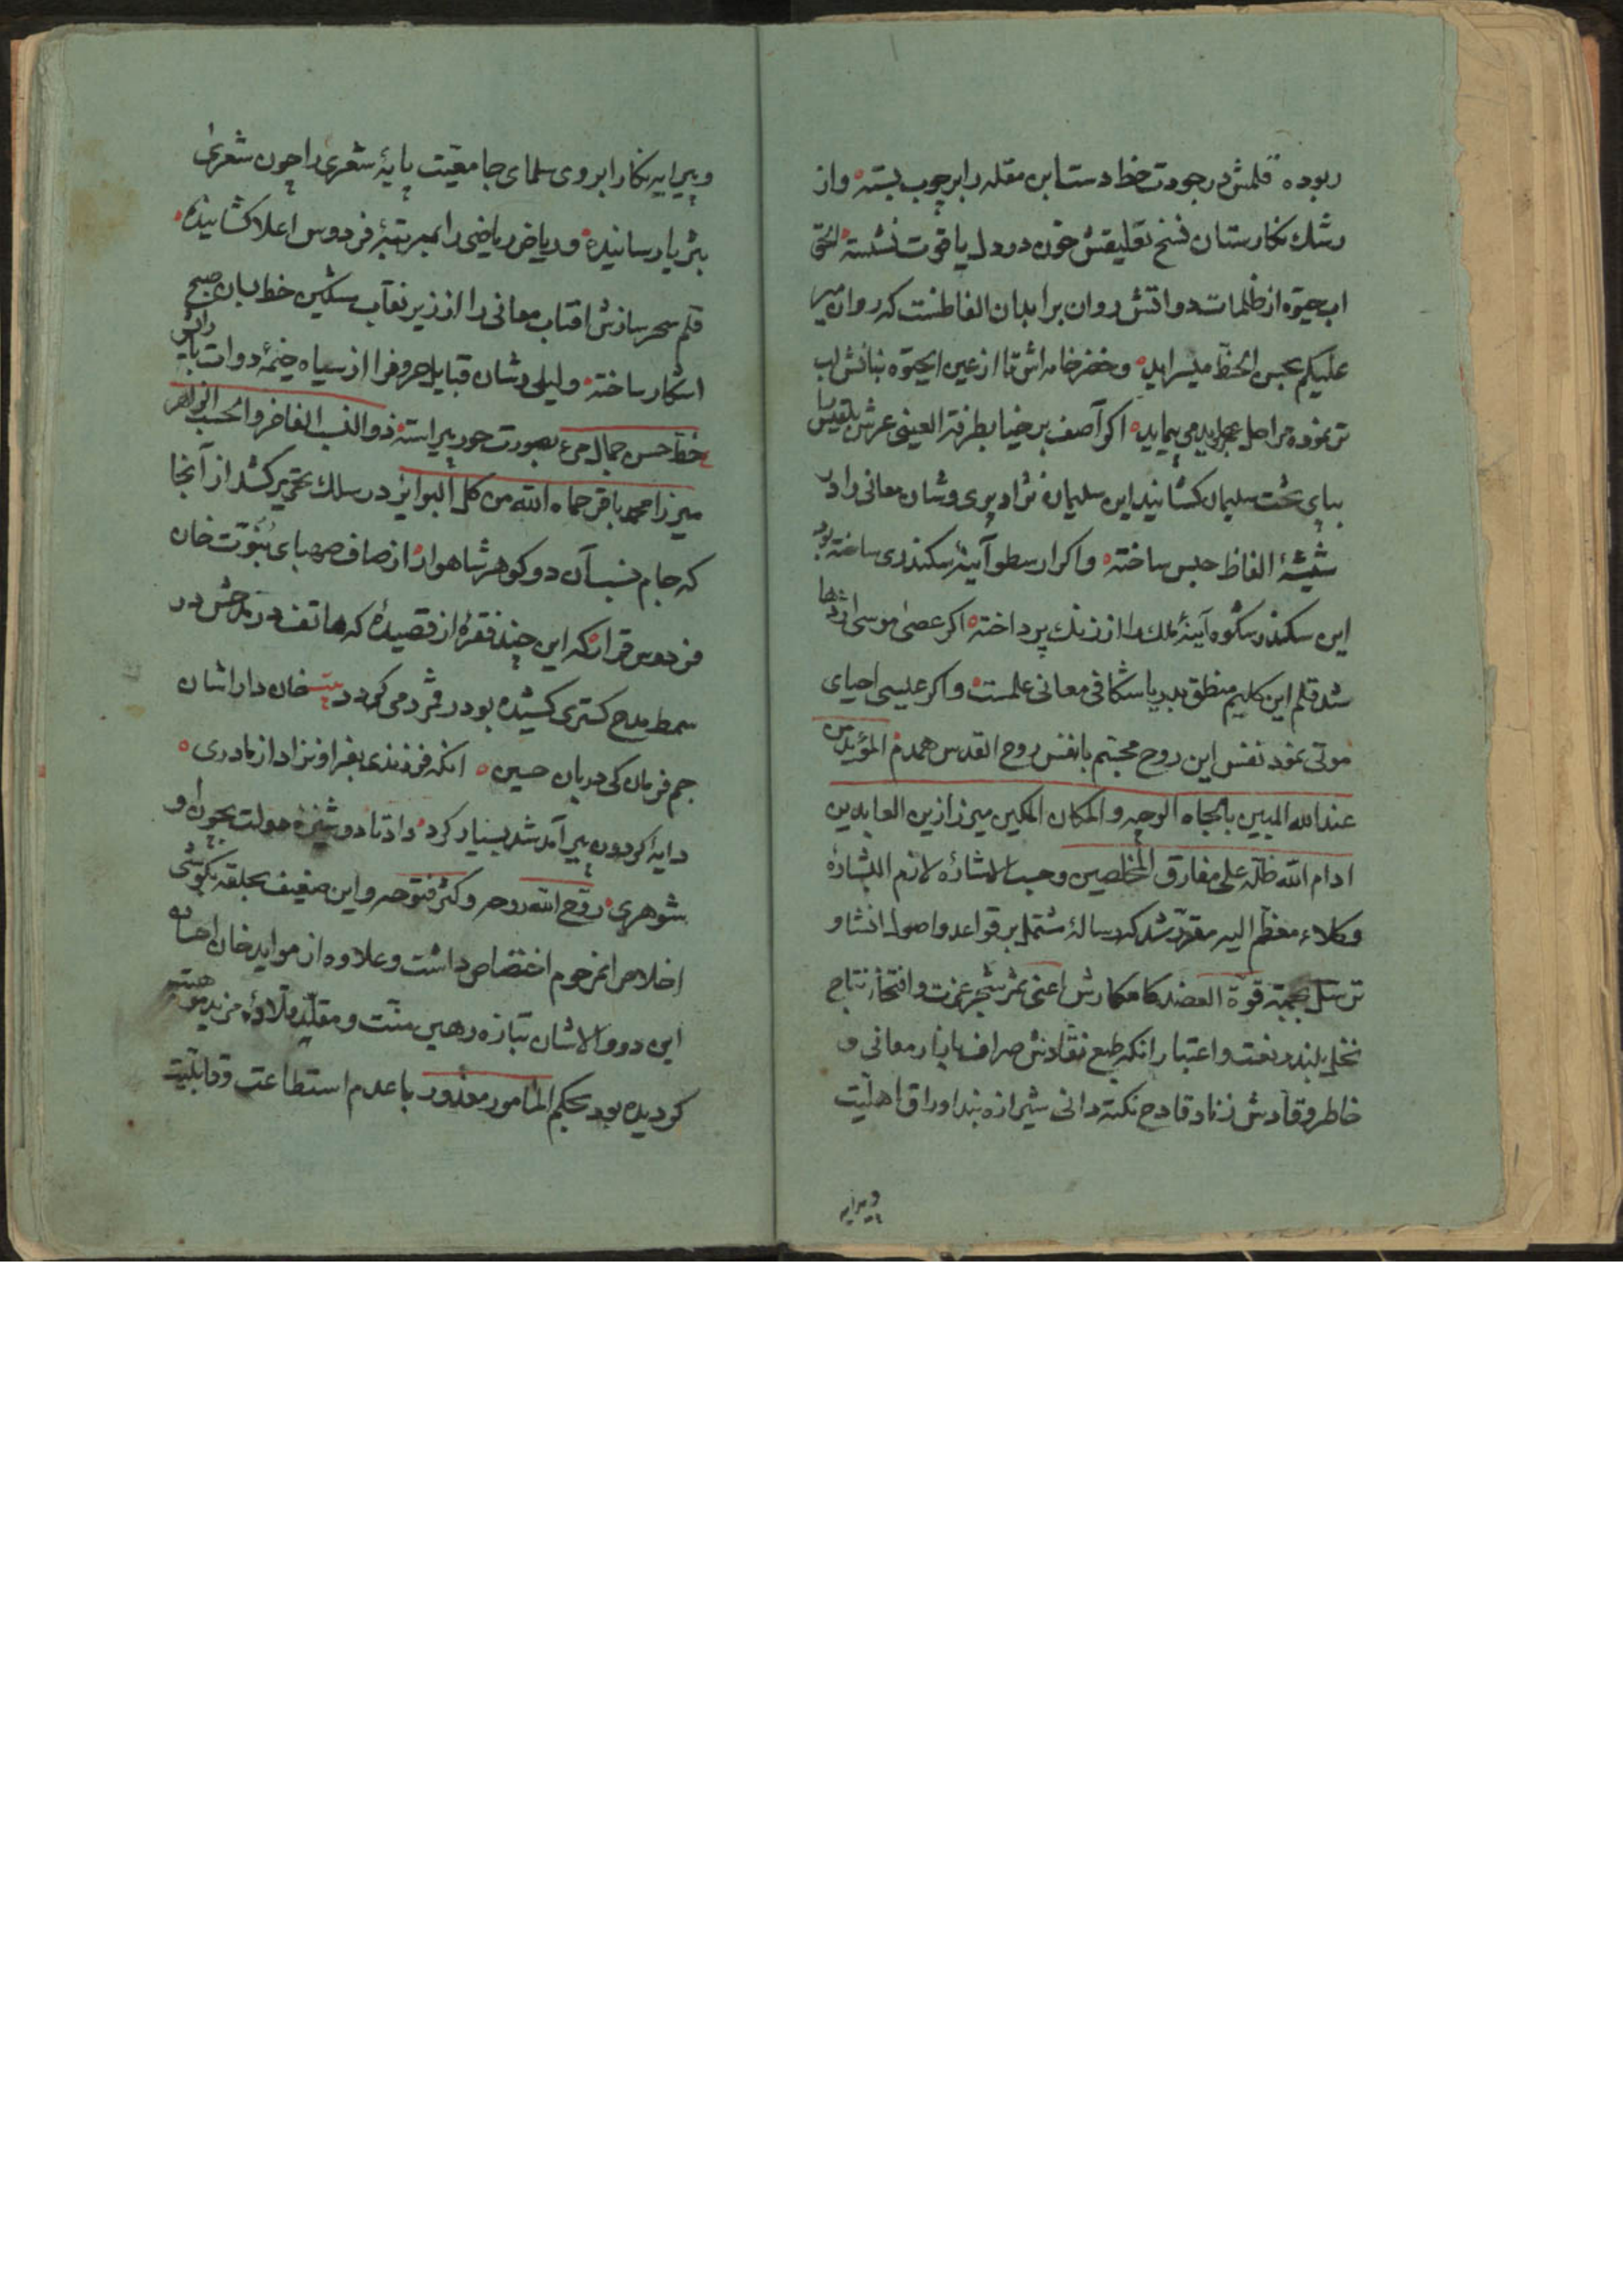 ربوده قلمش در جودت خط دست ابن مقله را بر چوب بسته و از
رشك نكارستان نسخ تعليقش خون در دل ياقوت نشسته الحق
اب حيوة از ظلمات دواتش روان بر ابدان الفاظست كه روان مير
عليكم بحسن الخط ميسرايد و خضر خامه اش تا از عين الحيوة بنانش لب
تر نموده مراحل مى پيمايد اكر آصف برخيا بطرفة العينى عرش بلقيس
بپاى تخت سليمان كشانيد اين سليمان نژاد پرى وشان معانى را در
شيشۀ الفاظ حبس ساخته و اكر ارسطو آينۀ سكندرى ساخته بود
اين سكندر شكوه آينۀ ملك را از زنك پرداخته اكر عصى موسى اژدها
شد قلم اين كليم منطق بدريا شكافى معانى علمست و اكر عيسى احياى
موتى نمود نفس اين روح مجسم با نفس روح القدس همدم المؤيد من
عند الله المبين بالجاه الوجيه و المكان المكين ميرزا زين العابدين
ادام الله ظله على مفارق المخلصين وحسب الاشارۀ لازم البشارۀ
وكلاء معظم اليه مقرر شد كه رسالۀ مشتمل بر قواعد و اصول انشا و
ترسل بجهة قوة العضد كامكارش اعنى ثمر شجر عزت و افتخار نتاج
نخل بلند رفعت و اعتبار انكه طبع نقادش صراف بازار معانى و
خاطر وقادش زناد قادح نكته دانى شيرازه بند اوراق اهليت
و پيرايه
و پيرايه نكار ابروى سلماى جامعيت پايۀ شعرى را چون شعرى
بثريا رسانيده و رياض رياضى را بمرتبۀ فردوس اعلا كشانيده
قلم سحر سازش افتاب معانى را از زير نقاب مشكين خط بسان صبح
اشكار ساخته و ليلى وشان قبايل حروف را از سياه خيمۀ دوات
خط حسن جمال بصورت حور پيراسته ذو النسب الفاخر و الحسب الزاهر
ميرزا محمد باقر حماه الله من كل البوائر در سلك تحرير كشد از آنجا
كه جام نسب آن دو كوهر شاهوار از صاف صهباى بنوت خان
فردوس قرار كه اين چند فقره از قصيدۀ كه هاتف در مدحش در
سمط مدح كسترى كشيده بود در فرد مى كردد بيت خان دارا شان
جم فرمان كى دربان حسين انكه فرزندى بفر او نزاد از مادرى
دايۀ كردون پير آمد شد بسيار كرد داد تا دوشيزۀ دولت بچون او
شوهرى روح الله روحه و كثر فتوحه و اين ضعيف بحلقه بكوشى
اخلاص انمرحوم اختصاص داشت و علاوه از موايد خان احسان
اين دو والاشان تبازه رهين منت و مقلد قلادۀ مزيد
كرديده بود بحكم المامور معذور با عدم استطاعت و قابليت